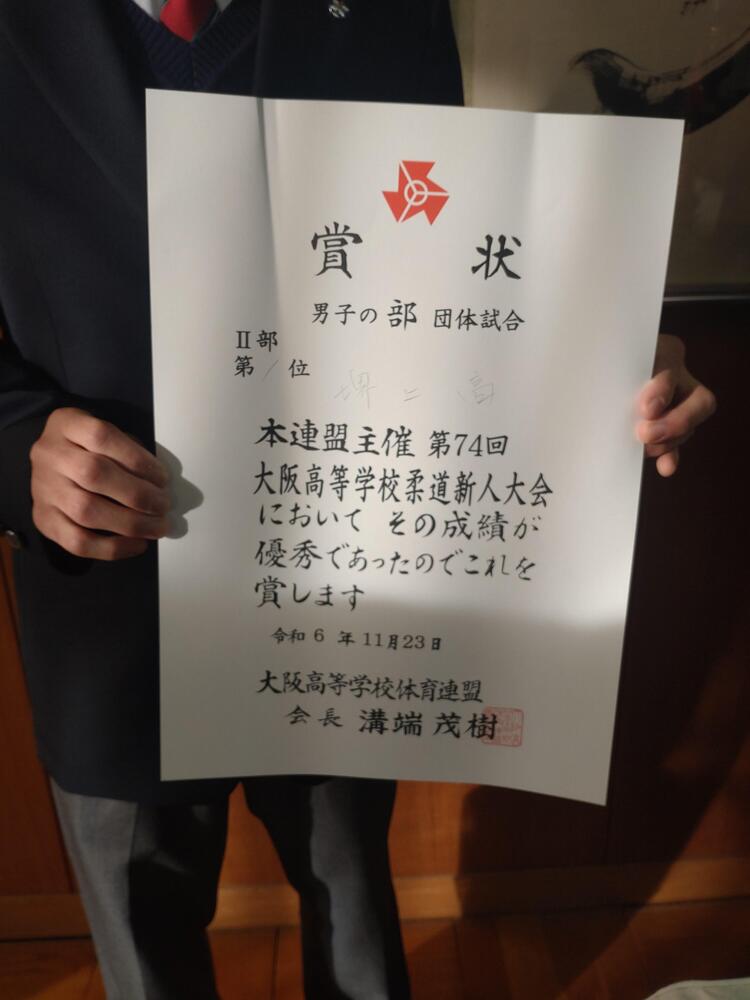 賞状
男子の部 団体試合
II部
第1位
堺工高
本連盟主催 第74回
大阪高等学校柔道新人大会
において その成績が
優秀であったのでこれを
賞します
令和6年11月23日
大阪高等学校体育連盟
会長 溝端茂樹